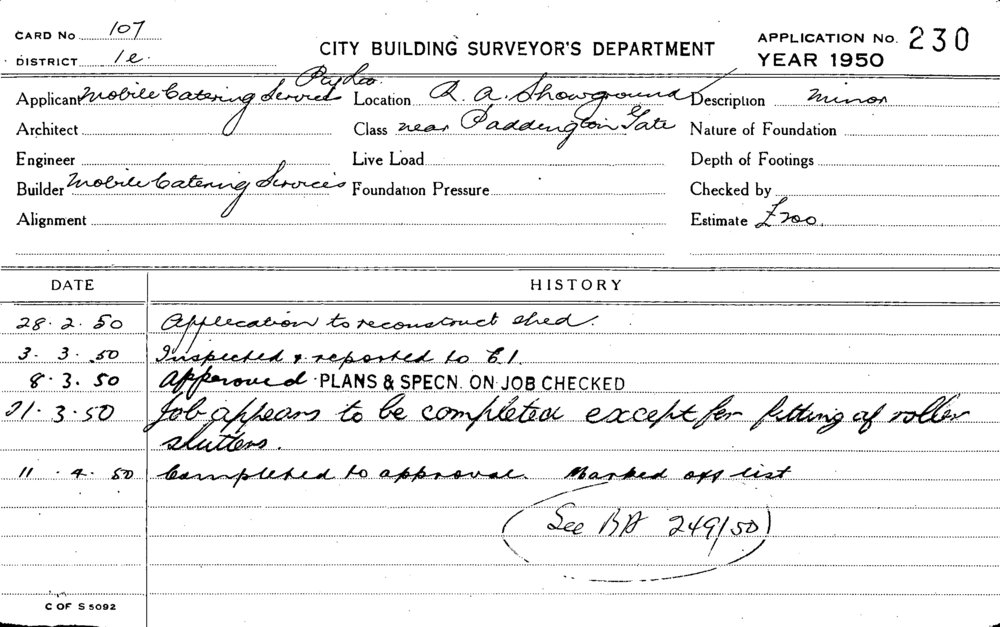 CARD No 107
DISTRICT 1e.
CITY BUILDING SURVEYOR'S DEPARTMENT
APPLICATION No. 230
YEAR 1950
Applicant Mobile Catering Services Pty Ltd. Location R. A. Showground Description Minor
Architect Class near Paddington Gate Nature of Foundation
Engineer Live Load Depth of Footings
Builder Mobile Catering Services Foundation Pressure Checked by
Alignment Estimate £200.
DATE HISTORY
28.2.50 Application to reconstruct shed.
3.3.50 Inspected & reported to C.I.
8.3.50 Approved PLANS & SPECN. ON JOB CHECKED
21.3.50 Job appears to be completed except for fitting of roller
shutters.
11.4.50 Completed to approval. Marked off list
See BA 249/50
C OF S 5092